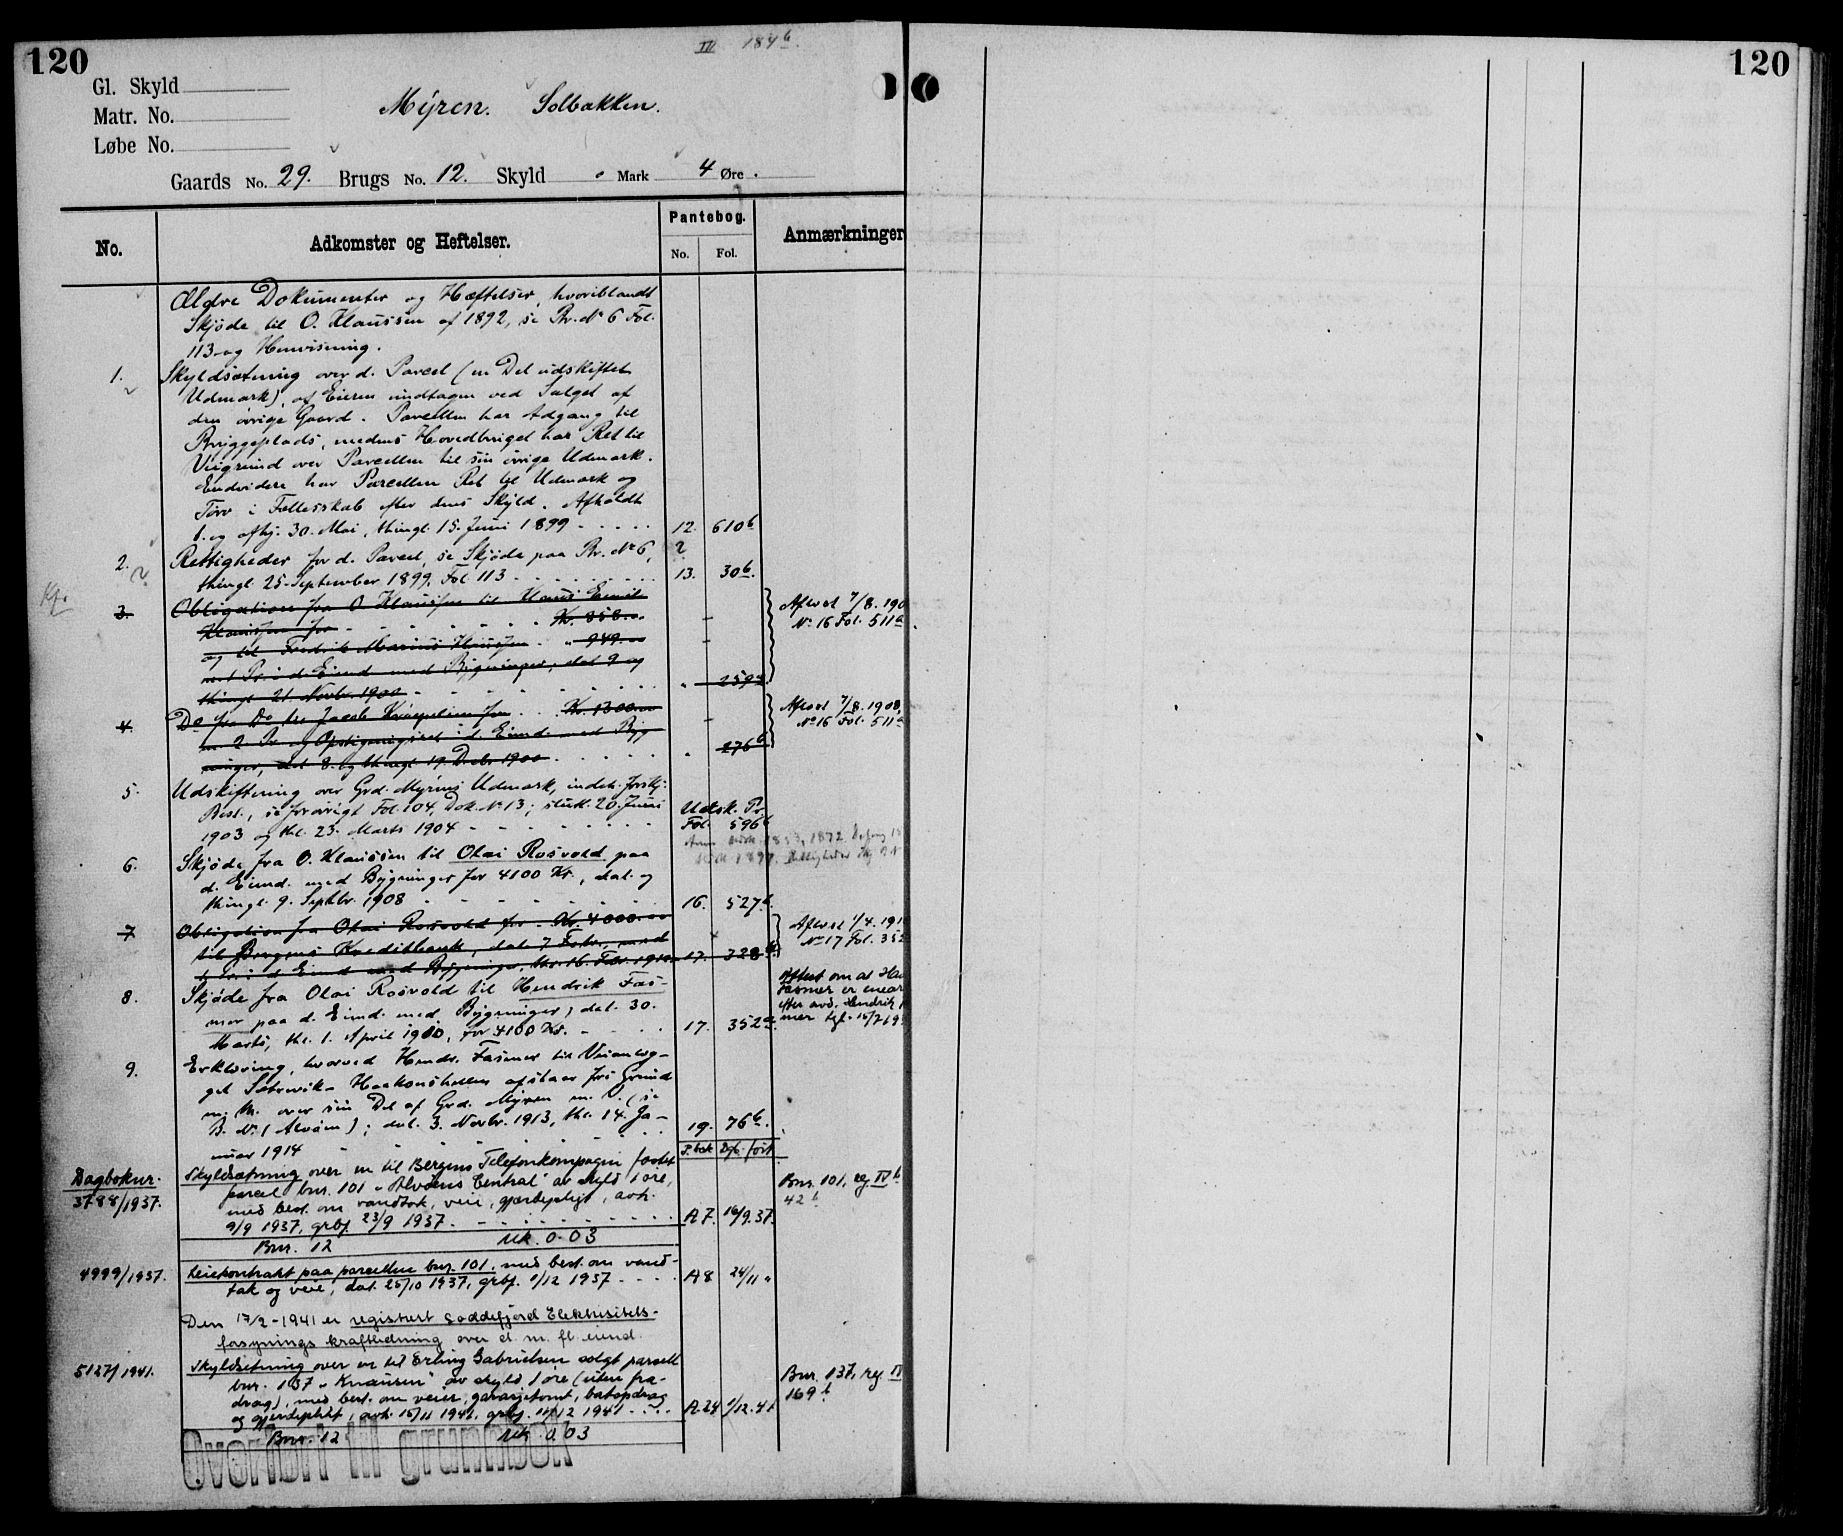 120
III 184b.
Gl. Skyld
Matr. No.
Løbe No.
Myren. Solbakken.
Gaards No. 29. Brugs No. 12. Skyld " Mark 4 Øre.
No.
Adkomster og Heftelser.
Pantebog.
No. Fol.
Anmærkninger
Ældre Dokumenter og Hæftelser, hvoriblandt
Skjøde til O. Klaussen af 1892, se Pr. No 6 Fol.
113 og Henvisning.
1. Skyldsætning over d. Parcel (en Del udskiftet
Udmark), af Eieren undtagen ved Salget af
den øvrige Gaard. Parcellen har Adgang til
Bryggeplads, medens Hovedbruget har Ret til
Veigrund over Parcellen til sin øvrige Udmark.
Endvidere har Parcellen Ret til Udmark og
Torv i Fællesskab efter dens Skyld. Afholdt
1. og afhj. 30. Mai, thingl. 15. Juni 1899 - - - - 12. 610b
2. Rettigheder for d. Parcel, se Skjøde paa Pr. No 6,
thingl. 25. September 1899, Fol. 113 - - - - 13. 306.
3. Obligation fra O. Klaussen til Hans Emil
Klaussen for - - - - Kr. 858.00
og til Fredrik Marius Klaussen - " 949.00
m. 1 Pr. i d. Eiend. med Bygninger, dat. 9 og
thingl. 21. Novbr. 1900 - - - - " 259a
Aflæst 7/8. 190
No 16 Fol. 511a
4. Do fra Do til Jacob - - Kr. 1300.00
m. 2. Pr. og Opsigningsret i d. Eiend. med Byg-
ninger, dat. 8. og thingl. 19. Decbr. 1900 - - - - " 276b
Aflæst 7/8. 1908,
No 16 Fol. 511a
5. Udskiftning over Grd. Myrens Udmark, indeh. forskj.
Best., se forøvrigt Fol. 104, Dok. No 13; slutt. 20. Juni
1903 og thl. 23. Marts 1904 - - - -
Udsk. Pr.
Fol. 596b
6. Skjøde fra O. Klaussen til Olai Rosvold paa
d. Eiend. med Bygninger for 4100 Kr., dat. og
thingl. 9. Septbr. 1908 - - - - 16. 527b.
7. Obligation fra Olai Rosvold for - Kr. 4000.00
til Bergens Kreditbank, dat. 7 Febr., med
1 Pr. i d. Eiend. med Bygninger, thr. 16. Febr. 1910 - 17. 328b
Aflæst 1/4. 191
No 17 Fol. 352
8. Skjøde fra Olai Rosvold til Hendrik Fas-
mer paa d. Eiend. med Bygninger, dat. 30.
Marts, thl. 1. April 1910, for 4100 Kr. - - - - 17. 352a.
Attest om at
Fasmer er enear
efter avd. Hendrik
mer tgl. 15/7
9. Erklæring, hvorved Hendr. Fasmer til Veianlæg-
get Sætrevik - Haakonshellen afstaar fri Grund
m. M. over sin Del af Grd. Myren m. V. (se
B. No 1 Alvøen); dat. 3. Novbr. 1913, thl. 14. Ja-
nuar 1914 - - - - 19. 76b.
P. bok Dgb. ført
Dagboknr.
3788/1937.
Skyldsetning over en til Bergens Telefonkompagni festet
parcel bnr. 101 "Alvøens Central" av skyld 1 øre,
med best. om vandtak, veie, gjerdeplikt, avh.
9/9 1937, grbf. 23/9 1937. - - - - A7. 16/9. 37.
Bnr. 101, reg. IVb
42b
Bnr. 12 Mk. 0.03
4999/1937.
Leiekontrakt paa parcellen bnr. 101, med best. om vand-
tak og veie, dat. 25/10 1937, grbf. 1/12 1937 - - - - A8 24/11 "
Den 17/2 - 1941 er registrert Loddefjord Elektrisitets-
forsynings kraftledning over d. m. fl. eiend.
5127/1941.
Skyldsetning over en til Erling Gabrielsen solgt parsell
bnr. 137 "Knausen" av skyld 1 øre (uten fra-
drag), med best. om veier, garasjetomt, båtopdrag
og gjerdeplikt, avh. 15/11 1941, grbf. 11/12 1941 - - - - A.24 1/12. 41
Bnr. 137, reg. IV
169b
Bnr. 12 Mk 0.03
Overført til grunnbok
120